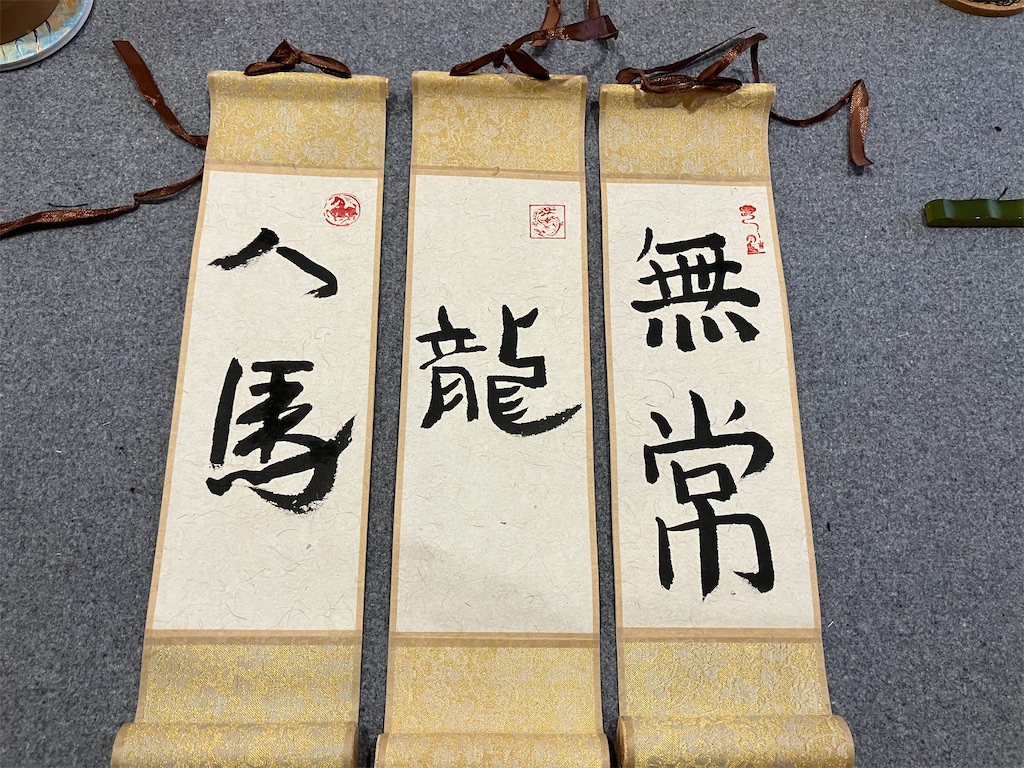 馬
龍
無常